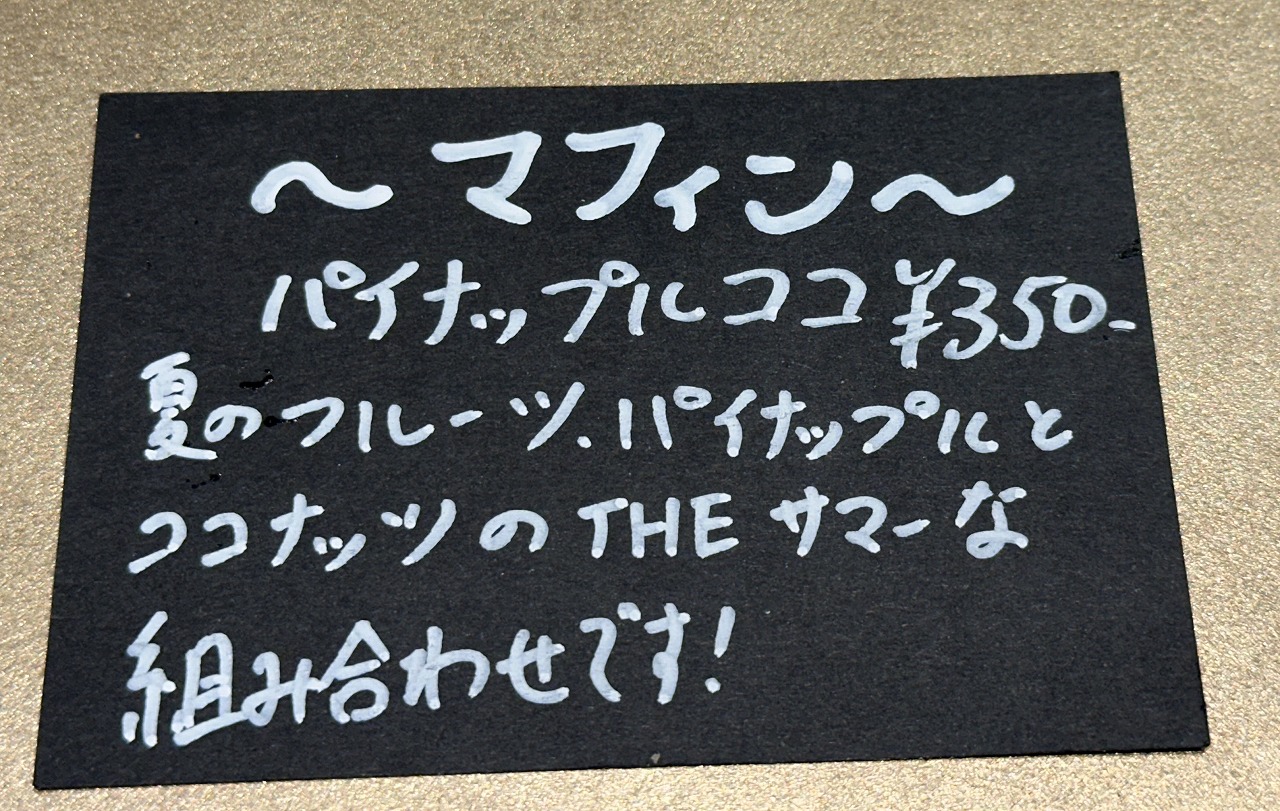 〜マフィン〜
パイナップルココ ¥350-
夏のフルーツ.パイナップルと
ココナッツのTHEサマーな
組み合わせです!